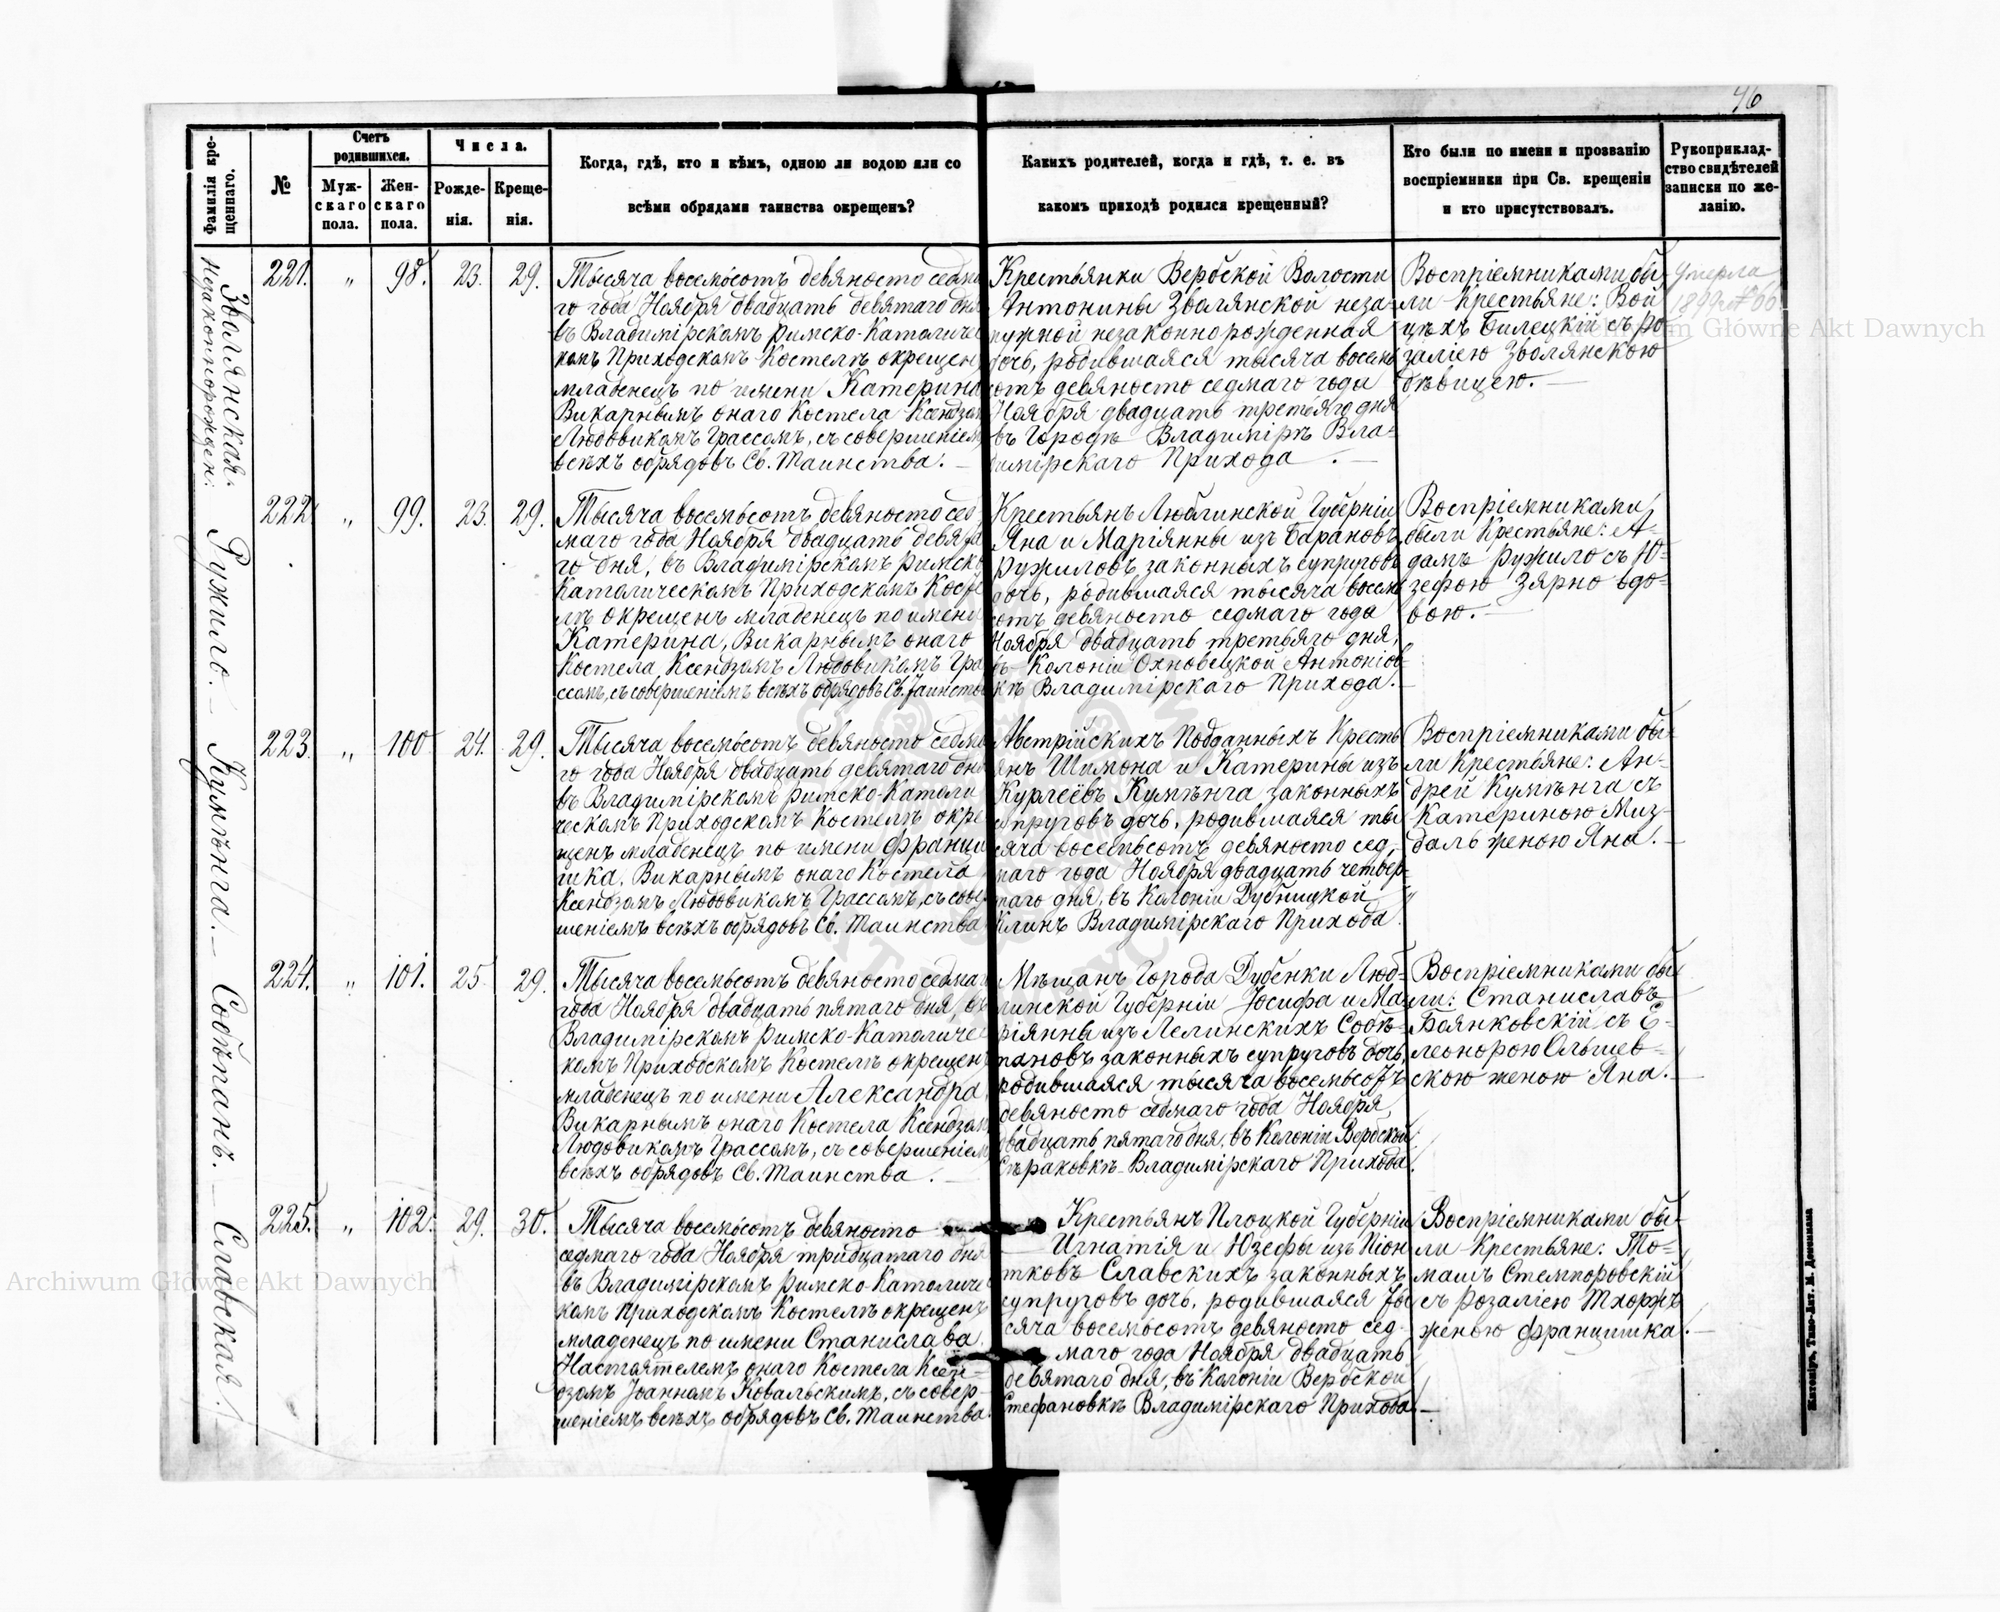 46
Фамилія кре-
щеннаго.
№
Счетъ
родившихся.
Муж-
скаго
пола.
Жен-
скаго
пола.
Числа.
Рожде-
нія.
Креще-
нія.
Когда, гдѣ, кто и кѣмъ, одною ли водою или со
всѣми обрядами таинства окрещенъ?
Какихъ родителей, когда и гдѣ, т. е. въ
какомъ приходѣ родился крещенный?
Кто были по имени и прозванію
воспріемники при Св. крещеніи
и кто присутствовалъ.
Рукоприклад-
ство свидѣтелей
записки по же-
ланію.
Зволянская
незаконнорожден:
221. " 98. 23. 29.
Тысяча восемьсотъ девяносто седма
го года Ноября двадцать девятаго дня
въ Владимірскомъ Римско-Католичес
комъ Приходскомъ Костелѣ окрещенъ
младенецъ по имени Катерина
Викарнымъ онаго Костела Ксендзомъ
Людовикомъ Грассомъ, съ совершеніемъ
всѣхъ обрядовъ Св. Таинства. —
Крестьянки Вербской Волости
Антонины Зволянской неза-
мужной незаконнорожденная
дочь, родившаяся тысяча восемь
сотъ девяносто седмаго года
Ноября двадцать третьяго дня
въ Городѣ Владимірѣ Вла-
димірскаго Прихода. —
Воспріемниками бы-
ли Крестьяне: Вой
цѣхъ Билецкій съ Ро
заліею Зволянскою
дѣвицею. —
Умерла
1899 № 66
Ружило. —
222. " 99. 23. 29.
Тысяча восемьсотъ девяносто сед-
маго года Ноября двадцать девята
го дня, въ Владимірскомъ Римско
Католическомъ Приходскомъ Косте
лѣ окрещенъ младенецъ по имени
Катерина, Викарнымъ онаго
Костела Ксендзомъ Людовикомъ Гра
ссомъ, съ совершеніемъ всѣхъ обрядовъ Св. Таинства
Крестьянъ Люблинской Губерніи
Яна и Маріянны изъ Барановъ
Ружиловъ законныхъ супруговъ
дочь, родившаяся тысяча восемь
сотъ девяносто седмаго года
Ноября двадцать третьяго дня,
въ Колоніи Охновецкой Антонiов-
кѣ Владимірскаго Прихода. —
Воспріемниками
были Крестьяне: А-
дамъ Ружило съ Ю-
зефою Зярно вдо-
вою. —
Кумѣнга. —
223. " 100 24. 29.
Тысяча восемьсотъ девяносто седма
го года Ноября двадцать девятаго дня
въ Владимірскомъ Римско-Католи
ческомъ Приходскомъ Костелѣ окре
щенъ младенецъ по имени Франци
шка, Викарнымъ онаго Костела
Ксендзомъ Людовикомъ Грассомъ, съ совер
шеніемъ всѣхъ обрядовъ Св. Таинства
Австрійскихъ Подданныхъ Кресть
янъ Шимона и Катерины изъ
Курлеёвъ Кумѣнга законныхъ
супруговъ дочь, родившаяся ты
сяча восемьсотъ девяносто сед,
маго года Ноября двадцать четвер
таго дня, въ Колоніи Дубницкой
Клинъ Владимірскаго Прихода.
Воспріемниками бы-
ли Крестьяне: Ан-
дрей Кумѣнга съ
Катериною Миз-
даль женою Яна. —
Собѣпанъ. —
224. " 101. 25. 29.
Тысяча восемьсотъ девяносто седмаго
года Ноября двадцать пятаго дня, въ
Владимірскомъ Римско-Католичес
комъ Приходскомъ Костелѣ окрещенъ
младенецъ по имени Александра,
Викарнымъ онаго Костела Ксендзомъ
Людовикомъ Грассомъ, съ совершеніемъ
всѣхъ обрядовъ Св. Таинства. —
Мѣщанъ Города Дубенки Люб-
линской Губерніи Іосифа и Ма
ріянны изъ Лелинскихъ Собѣ-
пановъ законныхъ супруговъ дочь,
родившаяся тысяча восемьсотъ
девяносто седмаго года Ноября,
двадцать пятаго дня, въ Колоніи Вербской
Сѣраковкѣ Владимірскаго Прихода.
Воспріемниками бы
ли: Станиславъ
Боянковскій съ Е-
леонорою Ольшев-
скою женою Яна. —
Славская.
225. " 102. 29. 30.
Тысяча восемьсотъ девяносто
седмаго года Ноября тридцатаго дня
въ Владимірскомъ Римско-Католиче
комъ Приходскомъ Костелѣ окрещенъ
младенецъ по имени Станислава,
Настоятелемъ онаго Костела Ксен-
дзомъ Іоанномъ Ковальскимъ, съ совер-
шеніемъ всѣхъ обрядовъ Св. Таинства.
Крестьянъ Плоцкой Губерніи
Игнатія и Юзефы изъ Піон
тковъ Славскихъ законныхъ
супруговъ дочь, родившаяся ты
сяча восемьсотъ девяносто сед-
маго года Ноября двадцать
девятаго дня, въ Колоніи Вербской
Стефановкѣ Владимірскаго Прихода. —
Воспріемниками бы-
ли Крестьяне: То-
машъ Стемпоровскій
съ Розаліею Тхоржъ
женою Францишка. —
Житоміръ, Типо-Лит. М. Дененмана
Archiwum Główne Akt Dawnych
Archiwum Główne Akt Dawnych